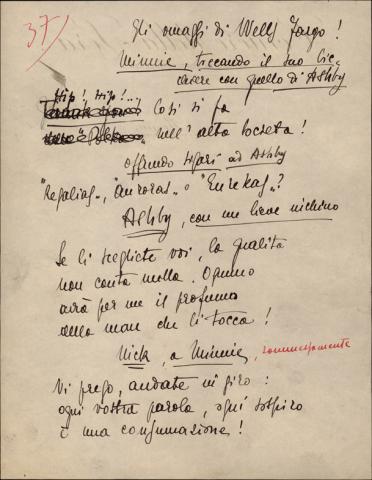 37)
Gli omaggi di Wells Fargo!
Minnie, toccando il suo bic-
chiere con quello di Ashby
Hip! Hip!..
Così si fa
nell'alta società!
offrendo sigari ad Ashby
"Regalias", "auroras" o "Eurekas"?
Ashby, con un lieve inchino
Se li scegliete voi, la qualità
non conta nulla. Ognuno
avrà per me il profumo
della man che li tocca!
Nick, a Minnie, sommessamente
Vi prego, andate in giro:
ogni vostra parola, ogni sospiro
è una consumazione!